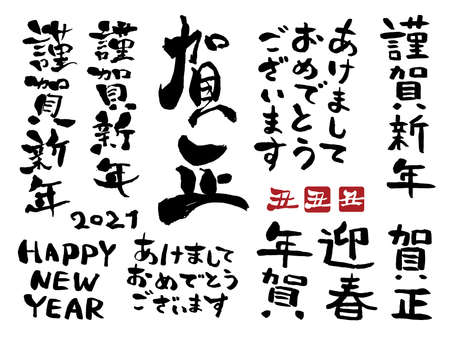 謹賀新年
賀正
迎春
年賀
あけまして
おめでとう
ございます
丑丑丑
賀正
謹賀新年
謹賀新年
2021
HAPPY
NEW
YEAR
あけまして
おめでとう
ございます